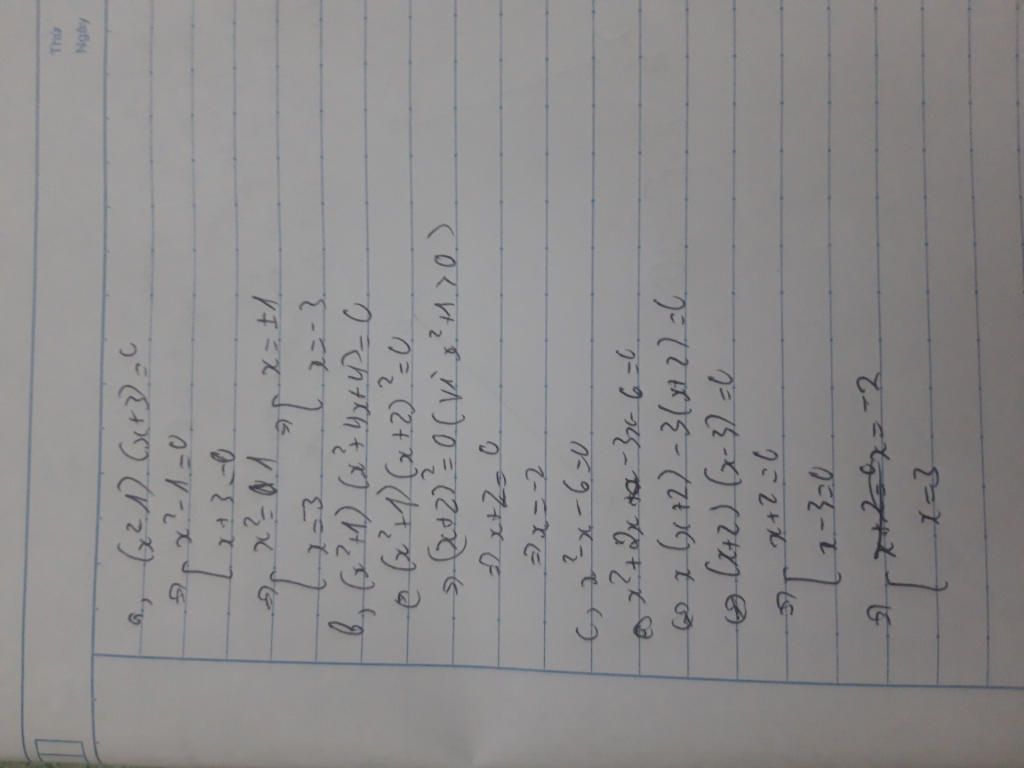 Thứ
Ngày
a, (x²-1)(x+3)=0
=> [ x²-1=0
x+3=0
=> [ x²=1 => [ x=±1
x=-3 x=-3
b, (x²+1)(x²+4x+4)=0
<=> (x²+1)(x+2)²=0
=> (x+2)²=0 (vì x²+1>0)
=> x+2=0
=> x=-2
c, x²-x-6=0
<=> x²+2x-3x-6=0
<=> x(x+2)-3(x+2)=0
<=> (x+2)(x-3)=0
=> [ x+2=0
x-3=0
=> [ x=-2
x=3